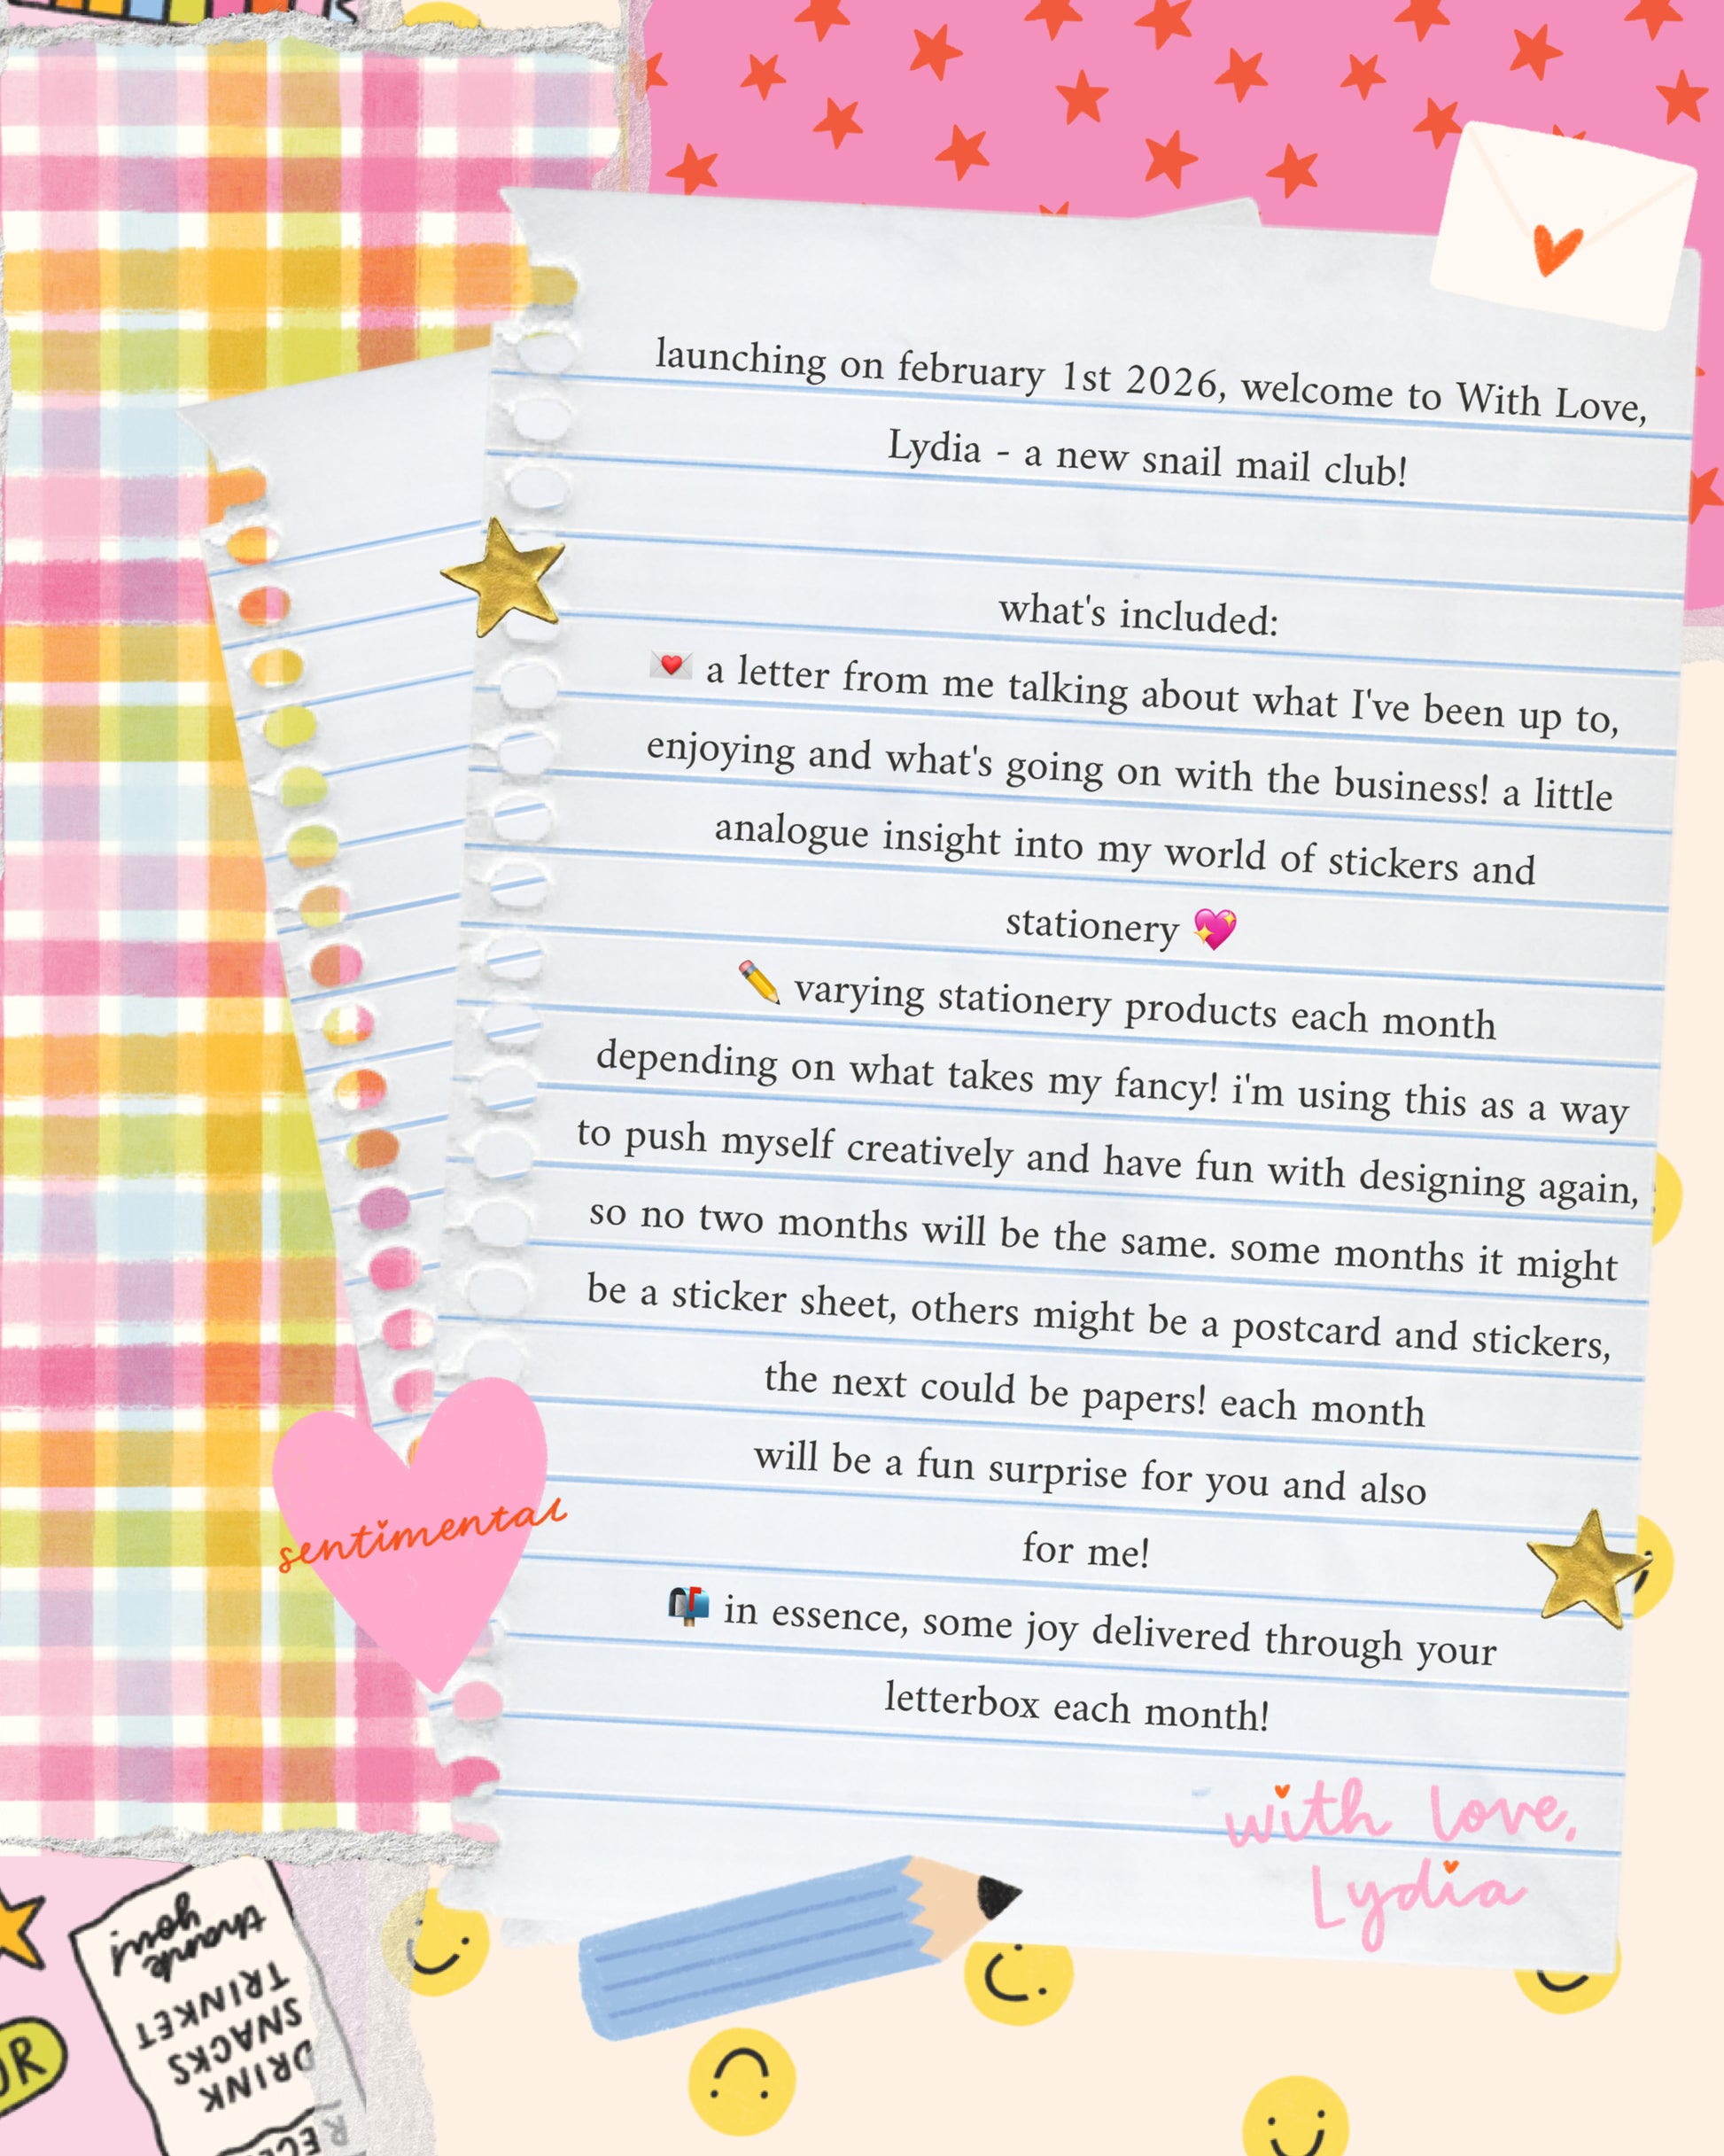 launching on february 1st 2026, welcome to With Love,
Lydia - a new snail mail club!
what's included:
💌 a letter from me talking about what I've been up to,
enjoying and what's going on with the business! a little
analogue insight into my world of stickers and
stationery 💖
✏️ varying stationery products each month
depending on what takes my fancy! i'm using this as a way
to push myself creatively and have fun with designing again,
so no two months will be the same. some months it might
be a sticker sheet, others might be a postcard and stickers,
the next could be papers! each month
will be a fun surprise for you and also
for me!
📬 in essence, some joy delivered through your
letterbox each month!
sentimental
with love,
Lydia
DRINK
SNACKS
TRINKET
thank
you!